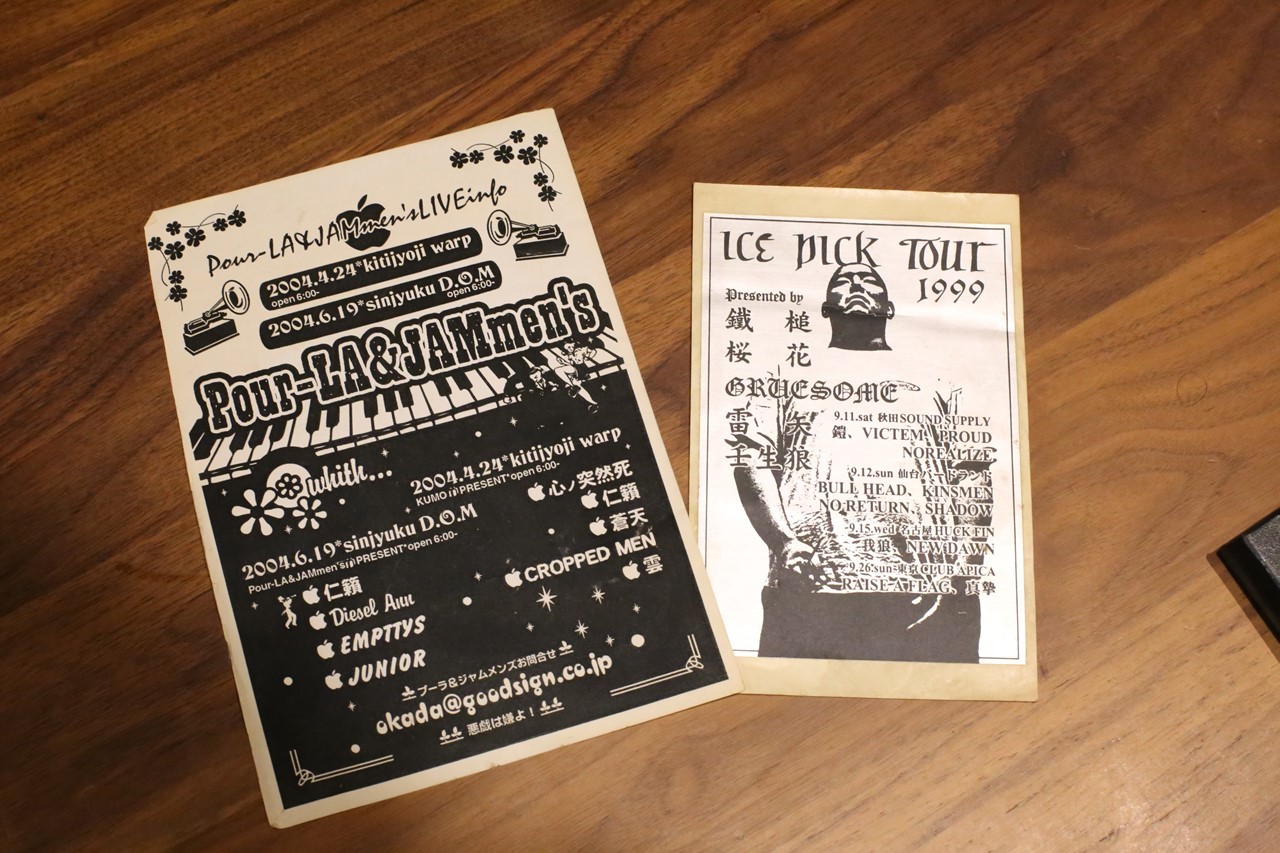 Pour-LA&JAMmen'sLIVEinfo
2004.4.24*kitijyoji warp
open 6:00-
2004.6.19*sinjyuku D.O.M
open 6:00-
Pour-LA&JAMmen's
whith...
2004.4.24*kitijyoji warp
KUMO PRESENT*open 6:00-
心ノ突然死
仁籟
蒼天
CROPPED MEN
雲
2004.6.19*sinjyuku D.O.M
Pour-LA&JAMmen's PRESENT*open 6:00-
仁籟
Diesel Ann
EMPTTYS
JUNIOR
プーラ&ジャムメンズお問合せ
okada@goodsign.co.jp
悪戯は嫌よ!
ICE PICK TOUR
1999
Presented by
鐵槌
桜花
GRUESOME
雷矢
壬生狼
9.11.sat 秋田SOUND SUPPLY
鎧、VICTEM、PROUD
NOREALIZE
9.12.sun 仙台バードランド
BULL HEAD、KINSMEN
NO RETURN、SHADOW
9.15.wed 名古屋HUCK FIN
我狼、NEW DAWN
9.26.sun 東京CLUB APICA
RAISE A FLAG、真摯